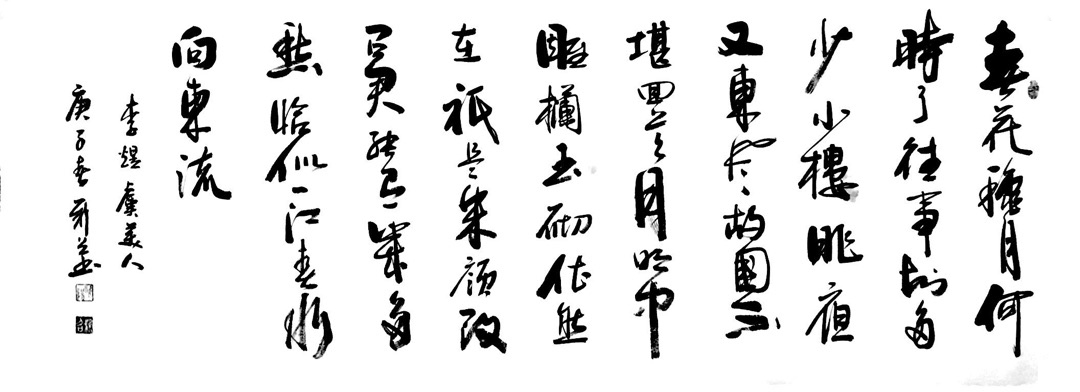 春花穐月何
時了往事知多
少小樓昨夜
又東風故國不
堪回首月明中
雕欄玉砌依然
在祇是朱顏改
問君能有幾多
愁恰似一江春水
向東流
李煜虞美人
庚子春